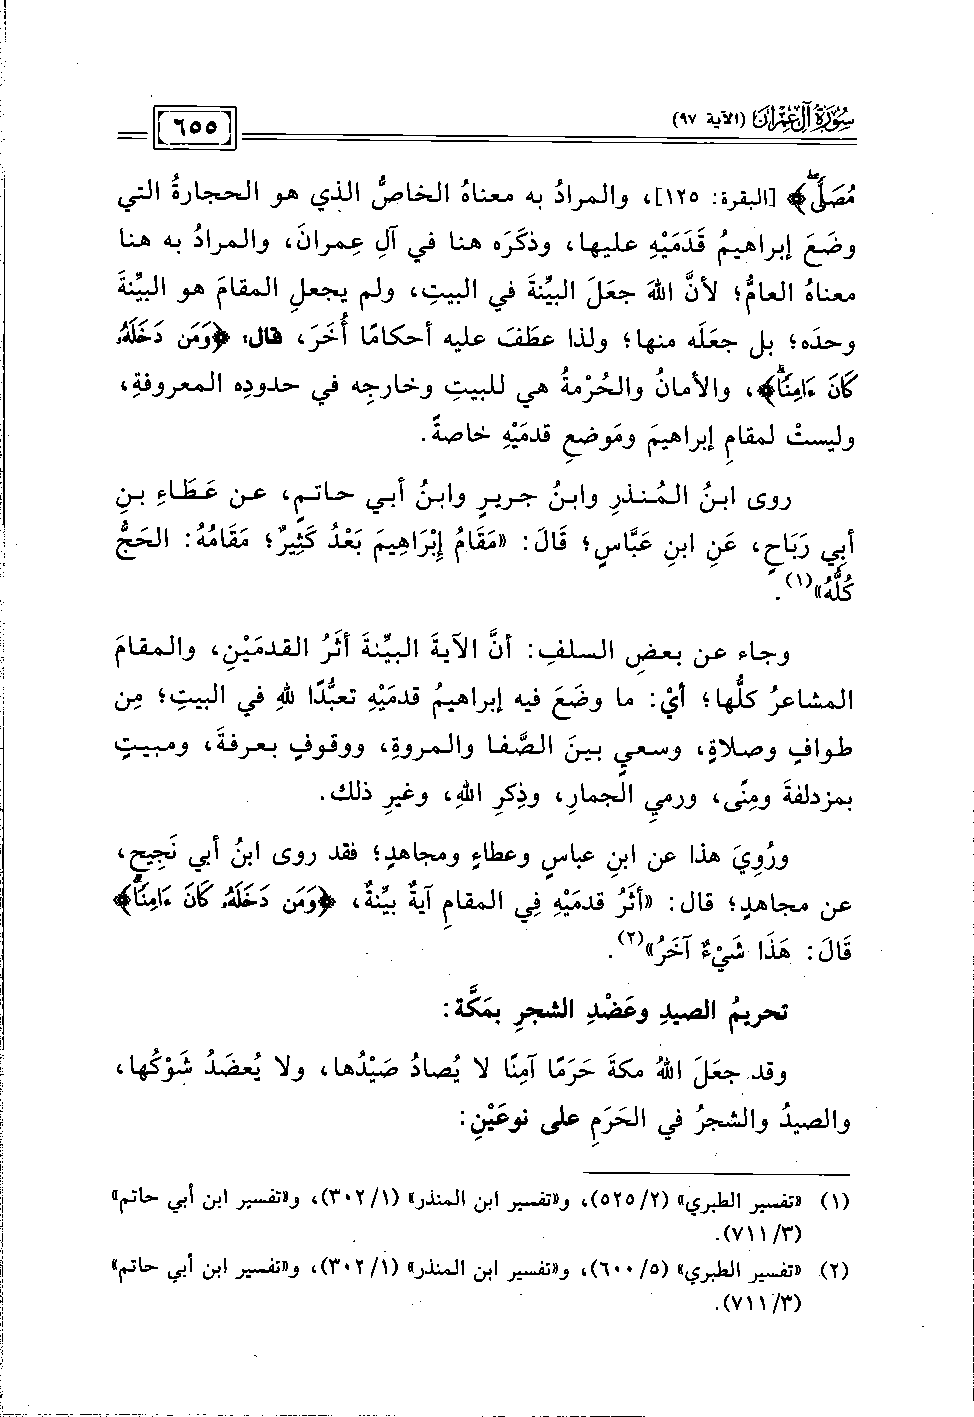 سُورَةُ آلِ عِمْرَانَ (الآية ٩٧)
٦٥٥
مُصَلًّىۖ﴾ [البقرة: ١٢٥]، والمرادُ به معناهُ الخاصُّ الذي هو الحجارةُ التي
وضَعَ إبراهيمُ قَدَمَيْهِ عليها، وذكَرَه هنا في آلِ عِمرانَ، والمرادُ به هنا
معناهُ العامُّ؛ لأنَّ اللهَ جعَلَ البيِّنةَ في البيتِ، ولم يجعلِ المقامَ هو البيِّنةَ
وحدَه؛ بل جعَلَه منها؛ ولذا عطَفَ عليه أحكامًا أُخَرَ، قال: ﴿وَمَن دَخَلَهُۥ
كَانَ ءَامِنٗاۗ﴾، والأمانُ والحُرْمةُ هي للبيتِ وخارجِه في حدودِه المعروفةِ،
وليستْ لمقامِ إبراهيمَ ومَوضعِ قدمَيْهِ خاصةً.
روى ابنُ المُنذرِ وابنُ جريرٍ وابنُ أبي حاتمٍ، عن عَطَاءِ بنِ
أبي رَبَاحٍ، عَنِ ابنِ عبَّاسٍ؛ قَالَ: «مَقَامُ إِبْرَاهِيمَ بَعْدُ كَثِيرٌ؛ مَقَامُهُ: الحَجُّ
كُلُّهُ»(١).
وجاء عن بعضِ السلفِ: أنَّ الآيةَ البيِّنةَ أثَرُ القدمَيْنِ، والمقامَ
المشاعرُ كلُّها؛ أيْ: ما وضَعَ فيه إبراهيمُ قدمَيْهِ تعبُّدًا للهِ في البيتِ؛ مِن
طوافٍ وصلاةٍ، وسعيٍ بينَ الصَّفا والمروةِ، ووقوفٍ بعرفةَ، ومبيتٍ
بمزدلفةَ ومِنًى، ورميِ الجمارِ، وذِكرِ اللهِ، وغيرِ ذلك.
ورُوِيَ هذا عن ابنِ عباسٍ وعطاءٍ ومجاهدٍ؛ فقد روى ابنُ أبي نَجِيحٍ،
عن مجاهدٍ؛ قال: «أثَرُ قدمَيْهِ فِي المقامِ آيةٌ بيِّنةٌ، ﴿وَمَن دَخَلَهُۥ كَانَ ءَامِنٗاۗ﴾
قَالَ: هَذَا شَيْءٌ آخَرُ»(٢).
تحريمُ الصيدِ وعَضْدِ الشجرِ بمَكَّةَ:
وقد جعَلَ اللهُ مكةَ حَرَمًا آمِنًا لا يُصادُ صَيْدُها، ولا يُعضَدُ شَوْكُها،
والصيدُ والشجرُ في الحَرَمِ على نوعَيْنِ:
(١) «تفسير الطبري» (٥٢٥/٢)، و«تفسير ابن المنذر» (٣٠٢/١)، و«تفسير ابن أبي حاتم»
(٧١١/٣).
(٢) «تفسير الطبري» (٦٠٠/٥)، و«تفسير ابن المنذر» (٣٠٢/١)، و«تفسير ابن أبي حاتم»
(٧١١/٣).